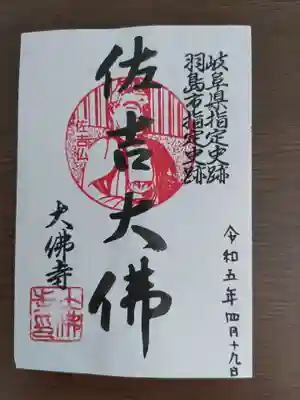 岐阜県指定史跡
羽島市指定史跡
佐吉大佛
佐吉仏
大佛寺
令和五年四月十九日